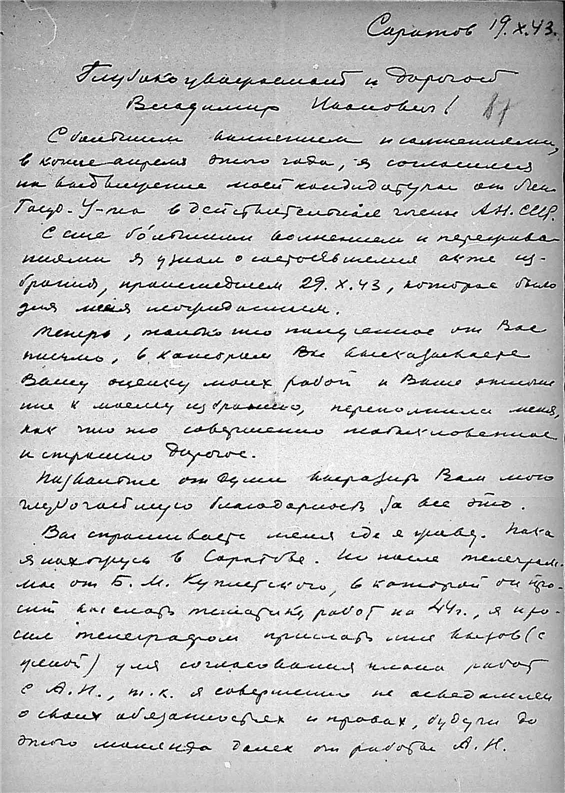 Саратов 19.X.43.
Глубокоуважаемый и дорогой
Владимир Иванович!
87
С большим волнением и сомнениями,
в конце апреля этого года, я согласился
на выдвижение моей кандидатуры от Лен.
Госуд. У-та в действительные члены АН.СССР.
С еще бо́льшим волнением и пережива
ниями я узнал о состоявшемся акте из-
брания, происшедшем 29.X.43, которое было
для меня неожиданным.
Теперь, только что полученное от Вас
письмо, в котором Вы высказываете
Вашу оценку моих работ и Ваше отноше
ние к моему избранию, переполнили меня,
как что-то совершенно необыкновенное
и страшно дорогое.
Позвольте от души выразить Вам мою
глубочайшую благодарность за все это.
Вы спрашиваете меня где я живу. Пока
я нахожусь в Саратове. Но после телеграм-
мы от Б. М. Куплетского, в которой он про-
сит выслать тематику работ на 44 г., я про-
сил телеграфом прислать мне вызов (с
женой) для согласования плана работ
с А.Н., т.к. я совершенно не осведомлен
о своих обязанностях и правах, будучи до
этого момента далек от работы А.Н.